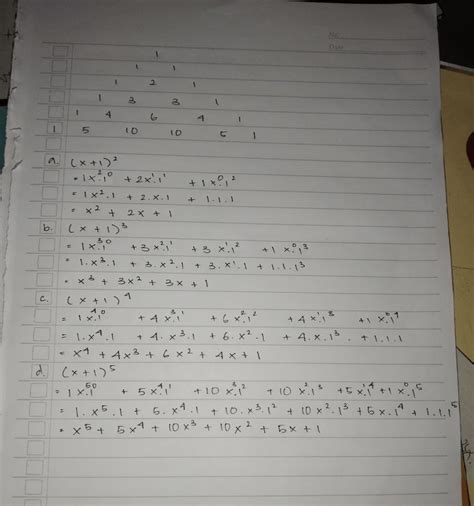 No
Date
1
1 1
1 2 1
1 3 3 1
1 4 6 4 1
1 5 10 10 5 1
a. (x+1)²
= 1x².1⁰ + 2x¹.1¹ + 1x⁰.1²
= 1x².1 + 2.x.1 + 1.1.1
= x² + 2x + 1
b. (x+1)³
= 1x³.1⁰ + 3x².1¹ + 3x¹.1² + 1x⁰.1³
= 1.x³.1 + 3.x².1 + 3.x¹.1 + 1.1.1³
= x³ + 3x² + 3x + 1
c. (x+1)⁴
= 1x⁴.1⁰ + 4x³.1¹ + 6x².1² + 4x¹.1³ + 1x⁰.1⁴
= 1.x⁴.1 + 4.x³.1 + 6.x².1 + 4.x.1³. + 1.1.1
= x⁴ + 4x³ + 6x² + 4x + 1
d. (x+1)⁵
= 1x⁵.1⁰ + 5x⁴.1¹ + 10x³.1² + 10x².1³ + 5x¹.1⁴ + 1x⁰.1⁵
= 1.x⁵.1 + 5.x⁴.1 + 10.x³.1² + 10x².1³ + 5x.1⁴ + 1.1.1⁵
= x⁵ + 5x⁴ + 10x³ + 10x² + 5x + 1